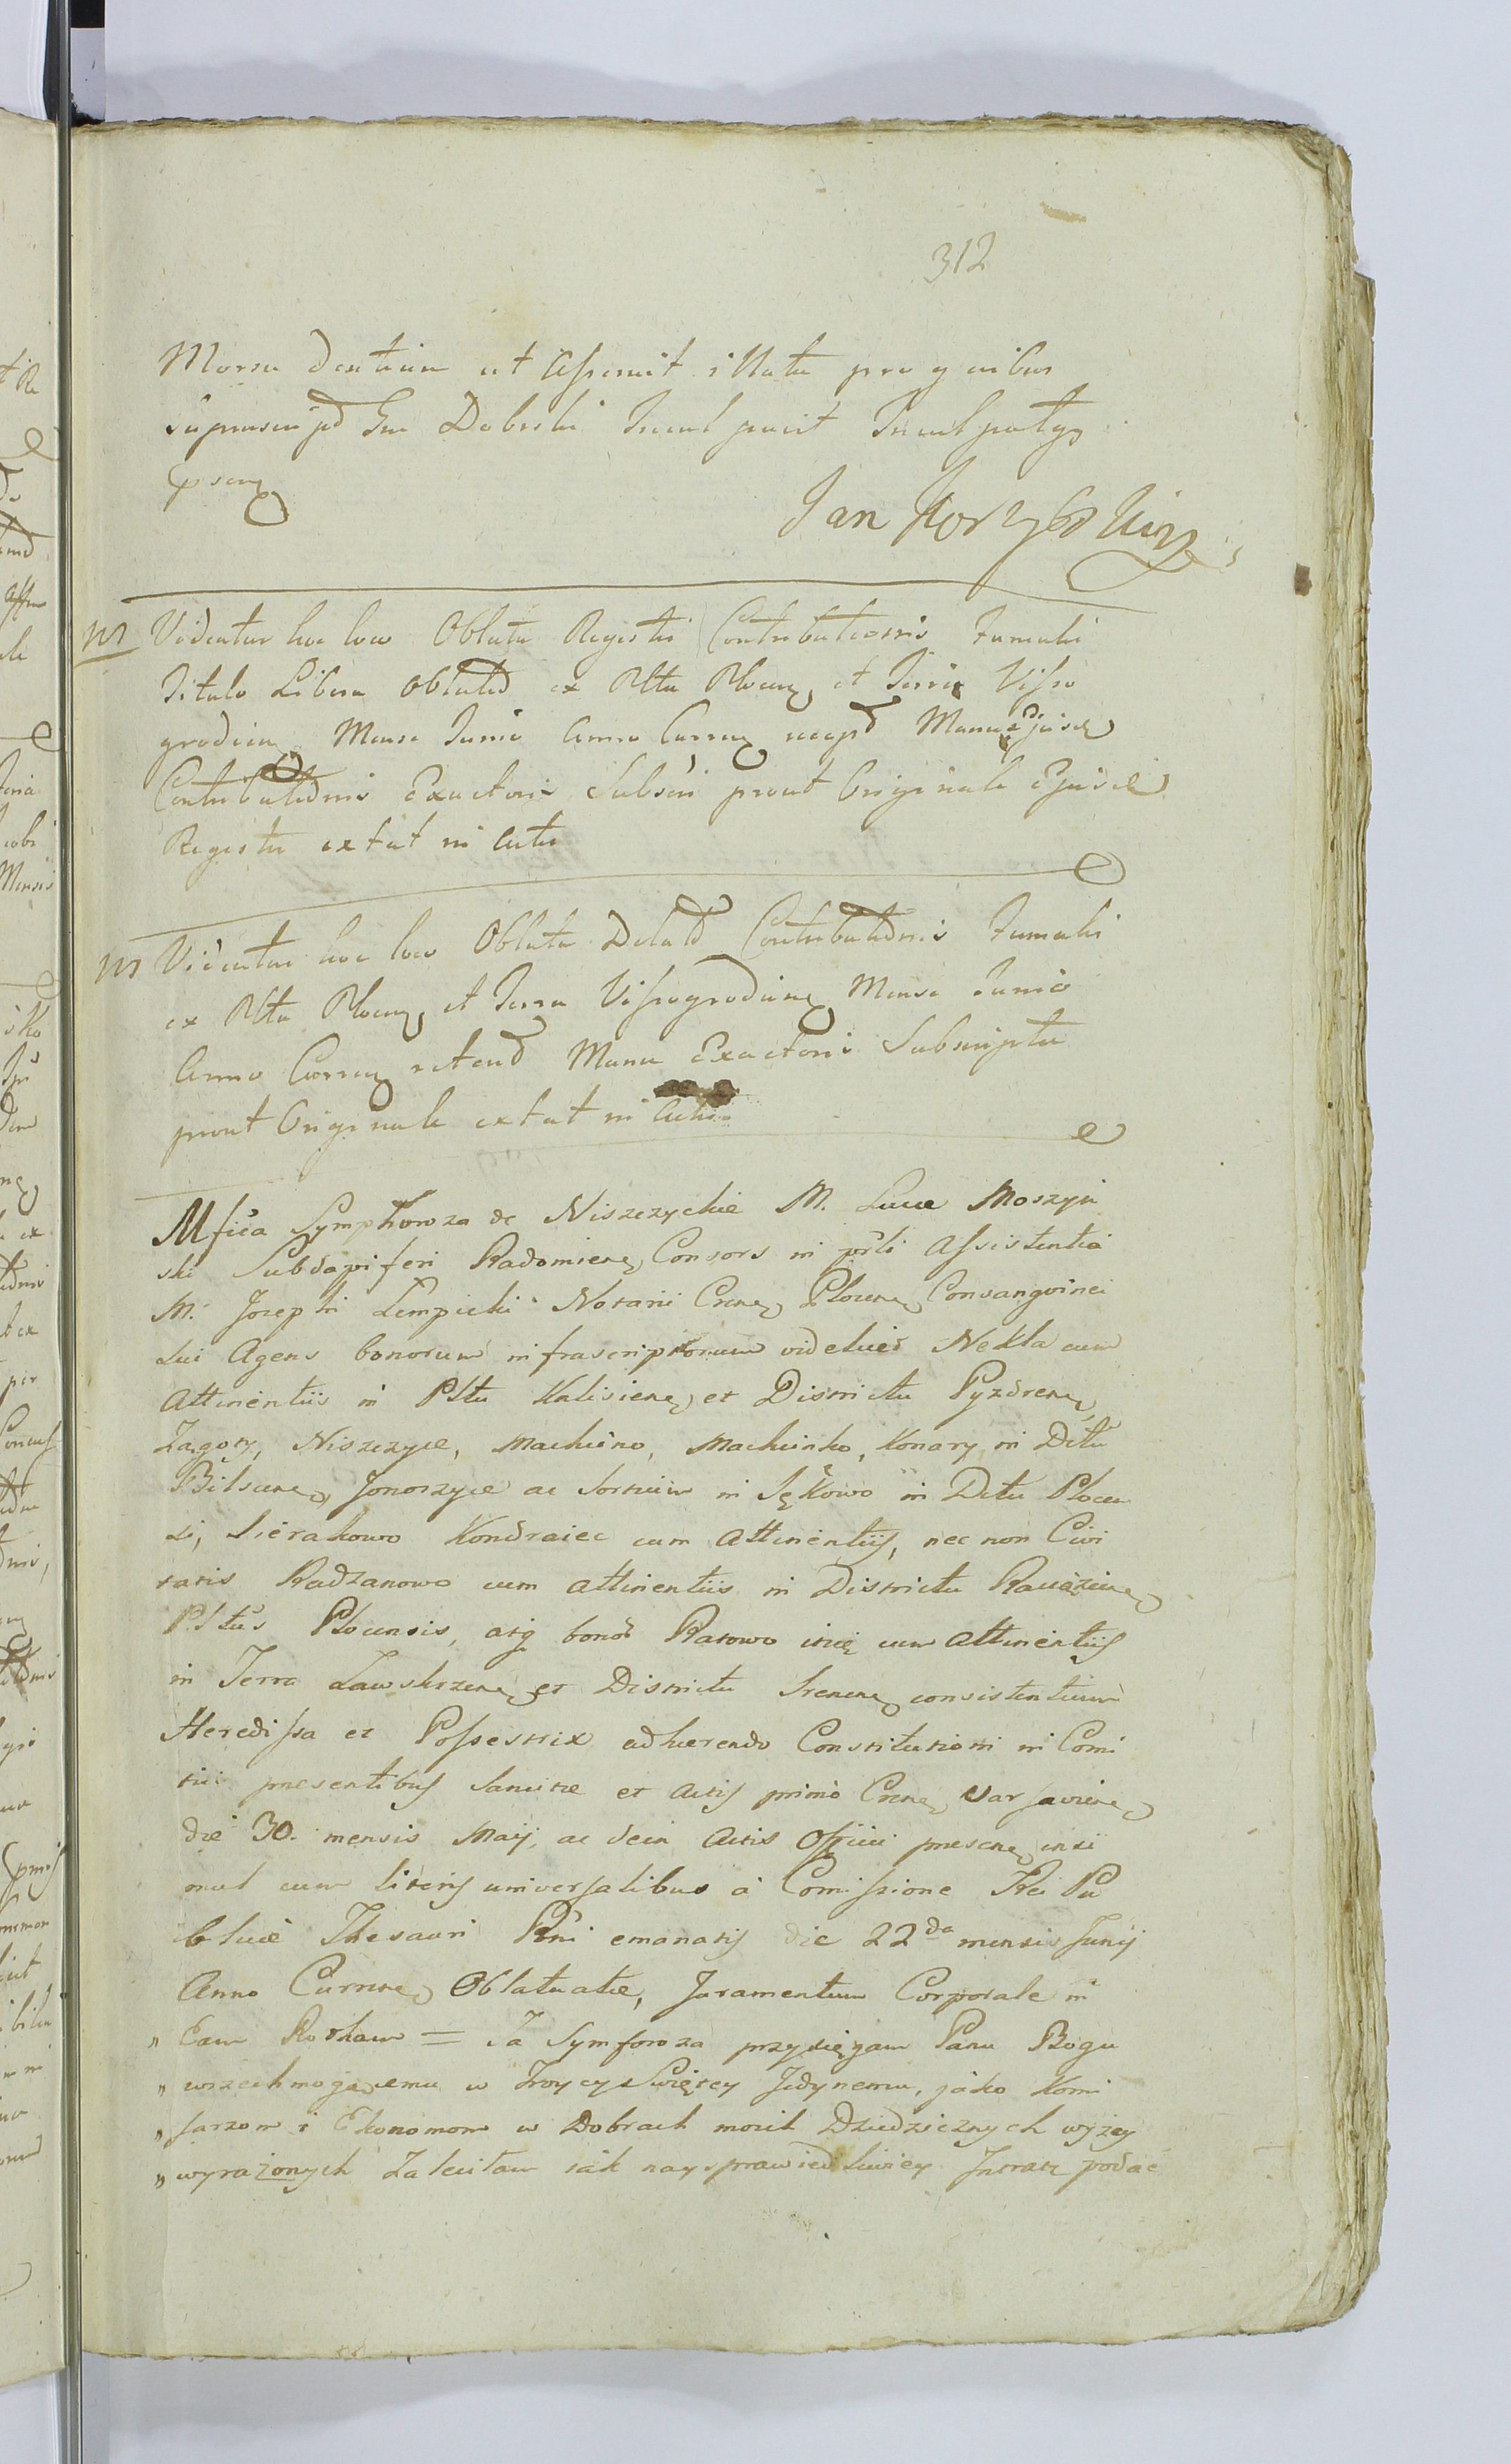 312
Morsu dentium ut asseruit illata pro quibus
Gnr Dobrski Inculpavit Inculpatq
pseng
Jan
Videatur hoc loco Oblata Regestri Contributionis Fumalis
Titulo Libera Oblatd ex Pltu Plocen et Terra Visso
grodien Mense Junio Anno Curren Manu ejusd
Contributionis Exactoris Subscri prout Originale Ejusd
Regestri extat in actis
Videatur hoc loco Oblata Delatd Contributionis Fumalis
ex Pltu Plocen et Terra Vissogrodien Mense Junio
Anno Curren Manu Exactoris Subscripta
prout Originale extat in Actis
Mfica Symphoroza de Niszczyckie M. Lucae Moszyń
ski Subdapiferi Radomien Consors in pñti Assistentia
M. Josephi Łempicki Notarii Cren Plocen Consangvinei
sui Agens bonorum infrascriptorum videlicet Nekla cum
Attinentiis in Pltu Kalisien et Districtu Pyzdren
Zągoty, Niszczyce, Machcino, Machcinko, Konary in Dctu
Bilscen, Jonoszyce ac Sortium in Sękowo in Dctu Plocen
si, Sierakowo Kondraiec cum Attinentiis, nec non Civi
tatis Radzanowo cum attinentiis in Districtu Raciązien
Pltus Plocensis, atq bonor Ratowo cum Attinentiis
in Terra Zawskrzen et Districtu Srenen consistentium
Heredissa et Possestrix adhaerendo Constitutioni in Comi
tiis praesentibus Sancitae et Actis primo Cren Varsavien
die 30. mensis Maij, ac dein Actis Officii praesen insi
mul cum literis universalibus à Comissione Rei Pu
blicae Thesauri Rgni emanatis die 22da mensis Junij
Anno Curren Oblatatae, Juramentum Corporale in
" Eam Rotham = Ja Symforoza przysięgam Panu Bogu
" wszechmogącemu w Troycy Swiętey Jedynemu, jáko Komi
" sarzom i Ekonomom w Dobrach moich Dziedzicznych wyżey
" wyrażonych Zaleciłam iák naysprawiedliwiey Intratę podać